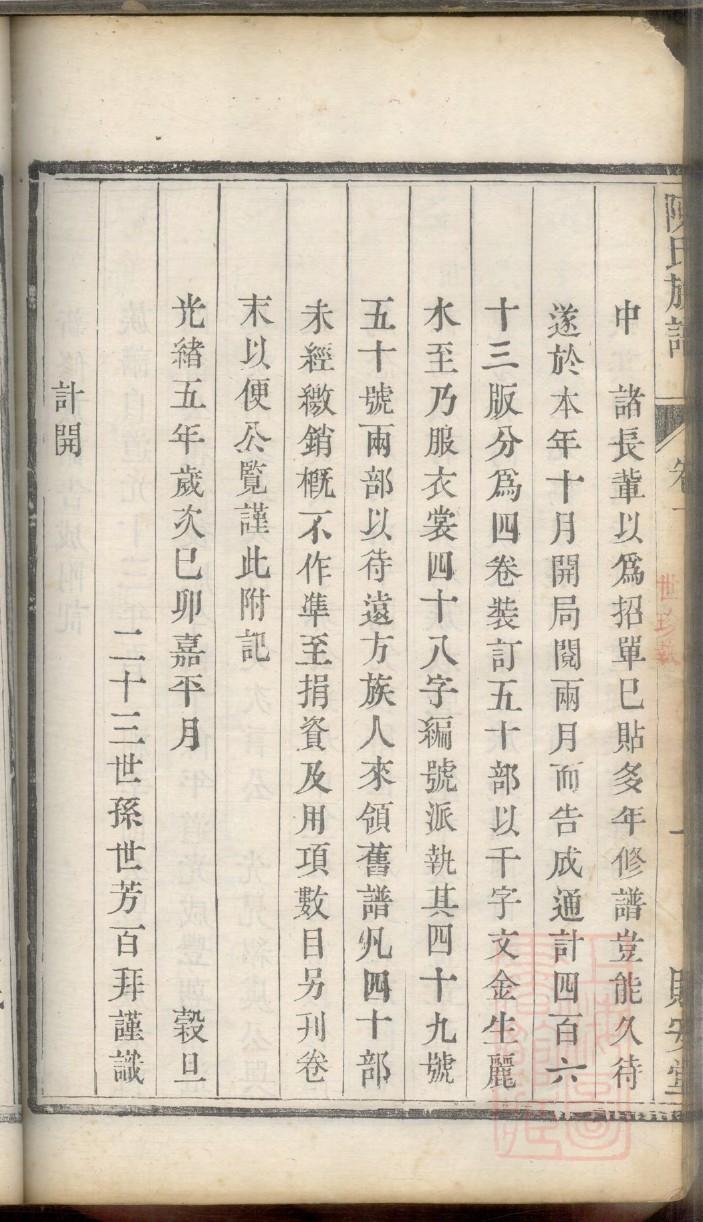 陳氏族譜
卷一
世珍執
一
貽安堂
中　諸長輩以爲招單已貼多年修譜豈能久待
遂於本年十月開局閱兩月而告成通計四百六
十三版分爲四卷裝訂五十部以千字文金生麗
水至乃服衣裳四十八字編號派執其四十九號
五十號兩部以待遠方族人來領舊譜凡四十部
未經繳銷概不作準至捐資及用項數目另刋卷
末以便公覧謹此附記
光緒五年歲次已卯嘉平月　　　穀旦
二十三世孫世芳百拜謹識
計開